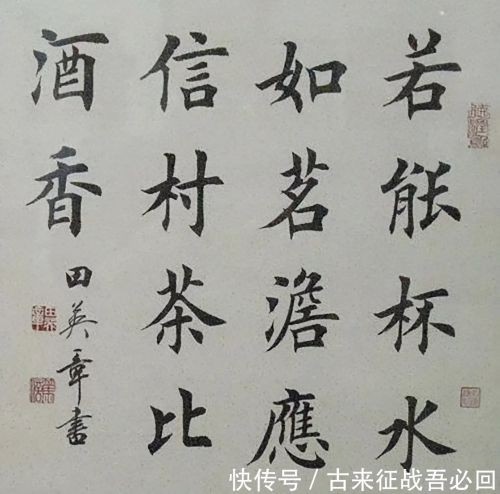 若能杯水
如茗澹應
信村茶比
酒香
田英章書
快传号/古来征战吾必回